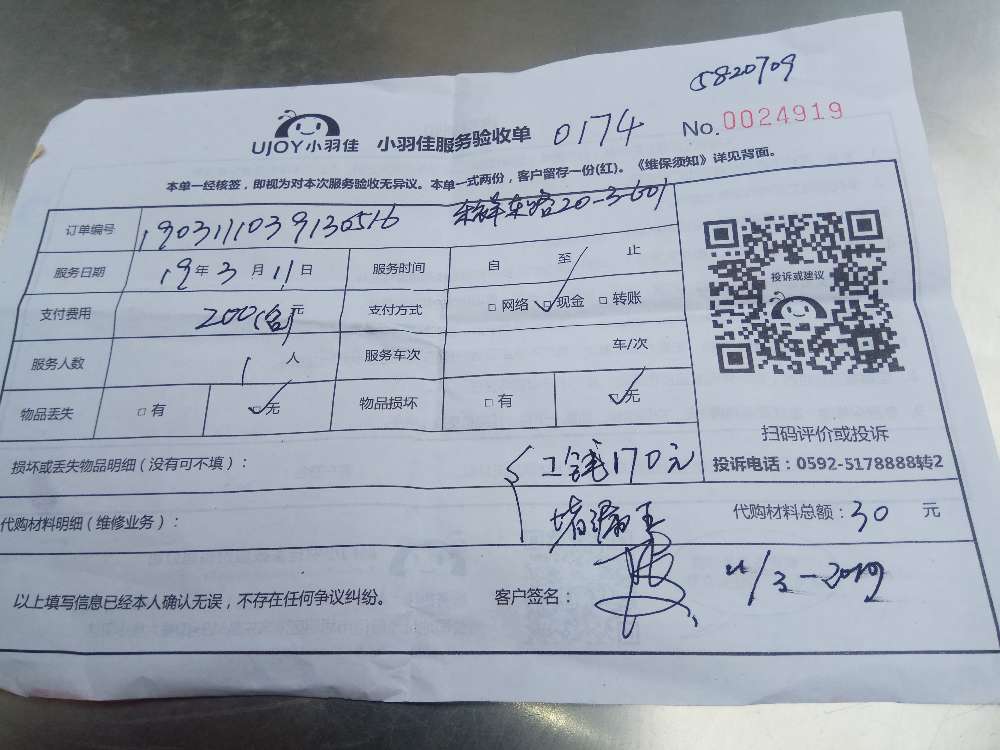 5820709
UJOY小羽佳 小羽佳服务验收单 0174 No.0024919
本单一经核签，即视为对本次服务验收无异议。本单一式两份，客户留存一份(红)。《维保须知》详见背面。
订单编号 1903111039136516 20-3-601
服务日期 19年3月11日 服务时间 自 至 止
支付费用 200(含)元 支付方式 □网络 ☑现金 □转账
服务人数 1人 服务车次 车/次
物品丢失 □有 ☑无 物品损坏 □有 ☑无
投诉或建议
扫码评价或投诉
投诉电话：0592-5178888转2
损坏或丢失物品明细（没有可不填）： 工钱170元
代购材料明细（维修业务）： 堵漏王 代购材料总额：30元
以上填写信息已经本人确认无误，不存在任何争议纠纷。 客户签名： 11/3-2019